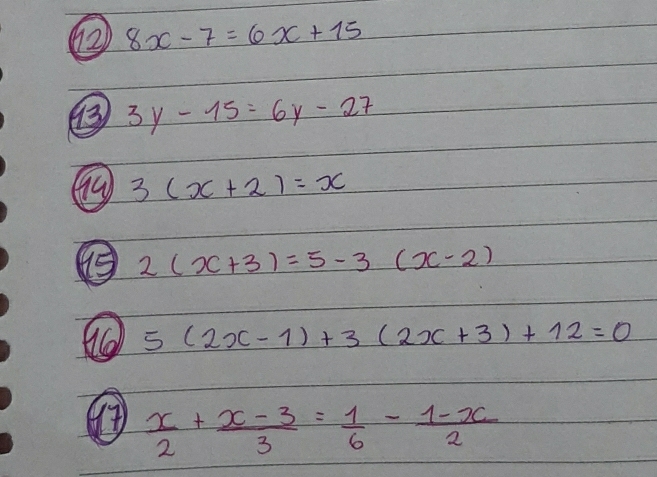 12 8x - 7 = 6x + 15
13 3y - 15 = 6y - 27
14 3 (x + 2) = x
15 2 (x + 3) = 5 - 3 (x - 2)
16 5 (2x - 1) + 3 (2x + 3) + 12 = 0
17 x/2 + x - 3/3 = 1/6 - 1 - x/2